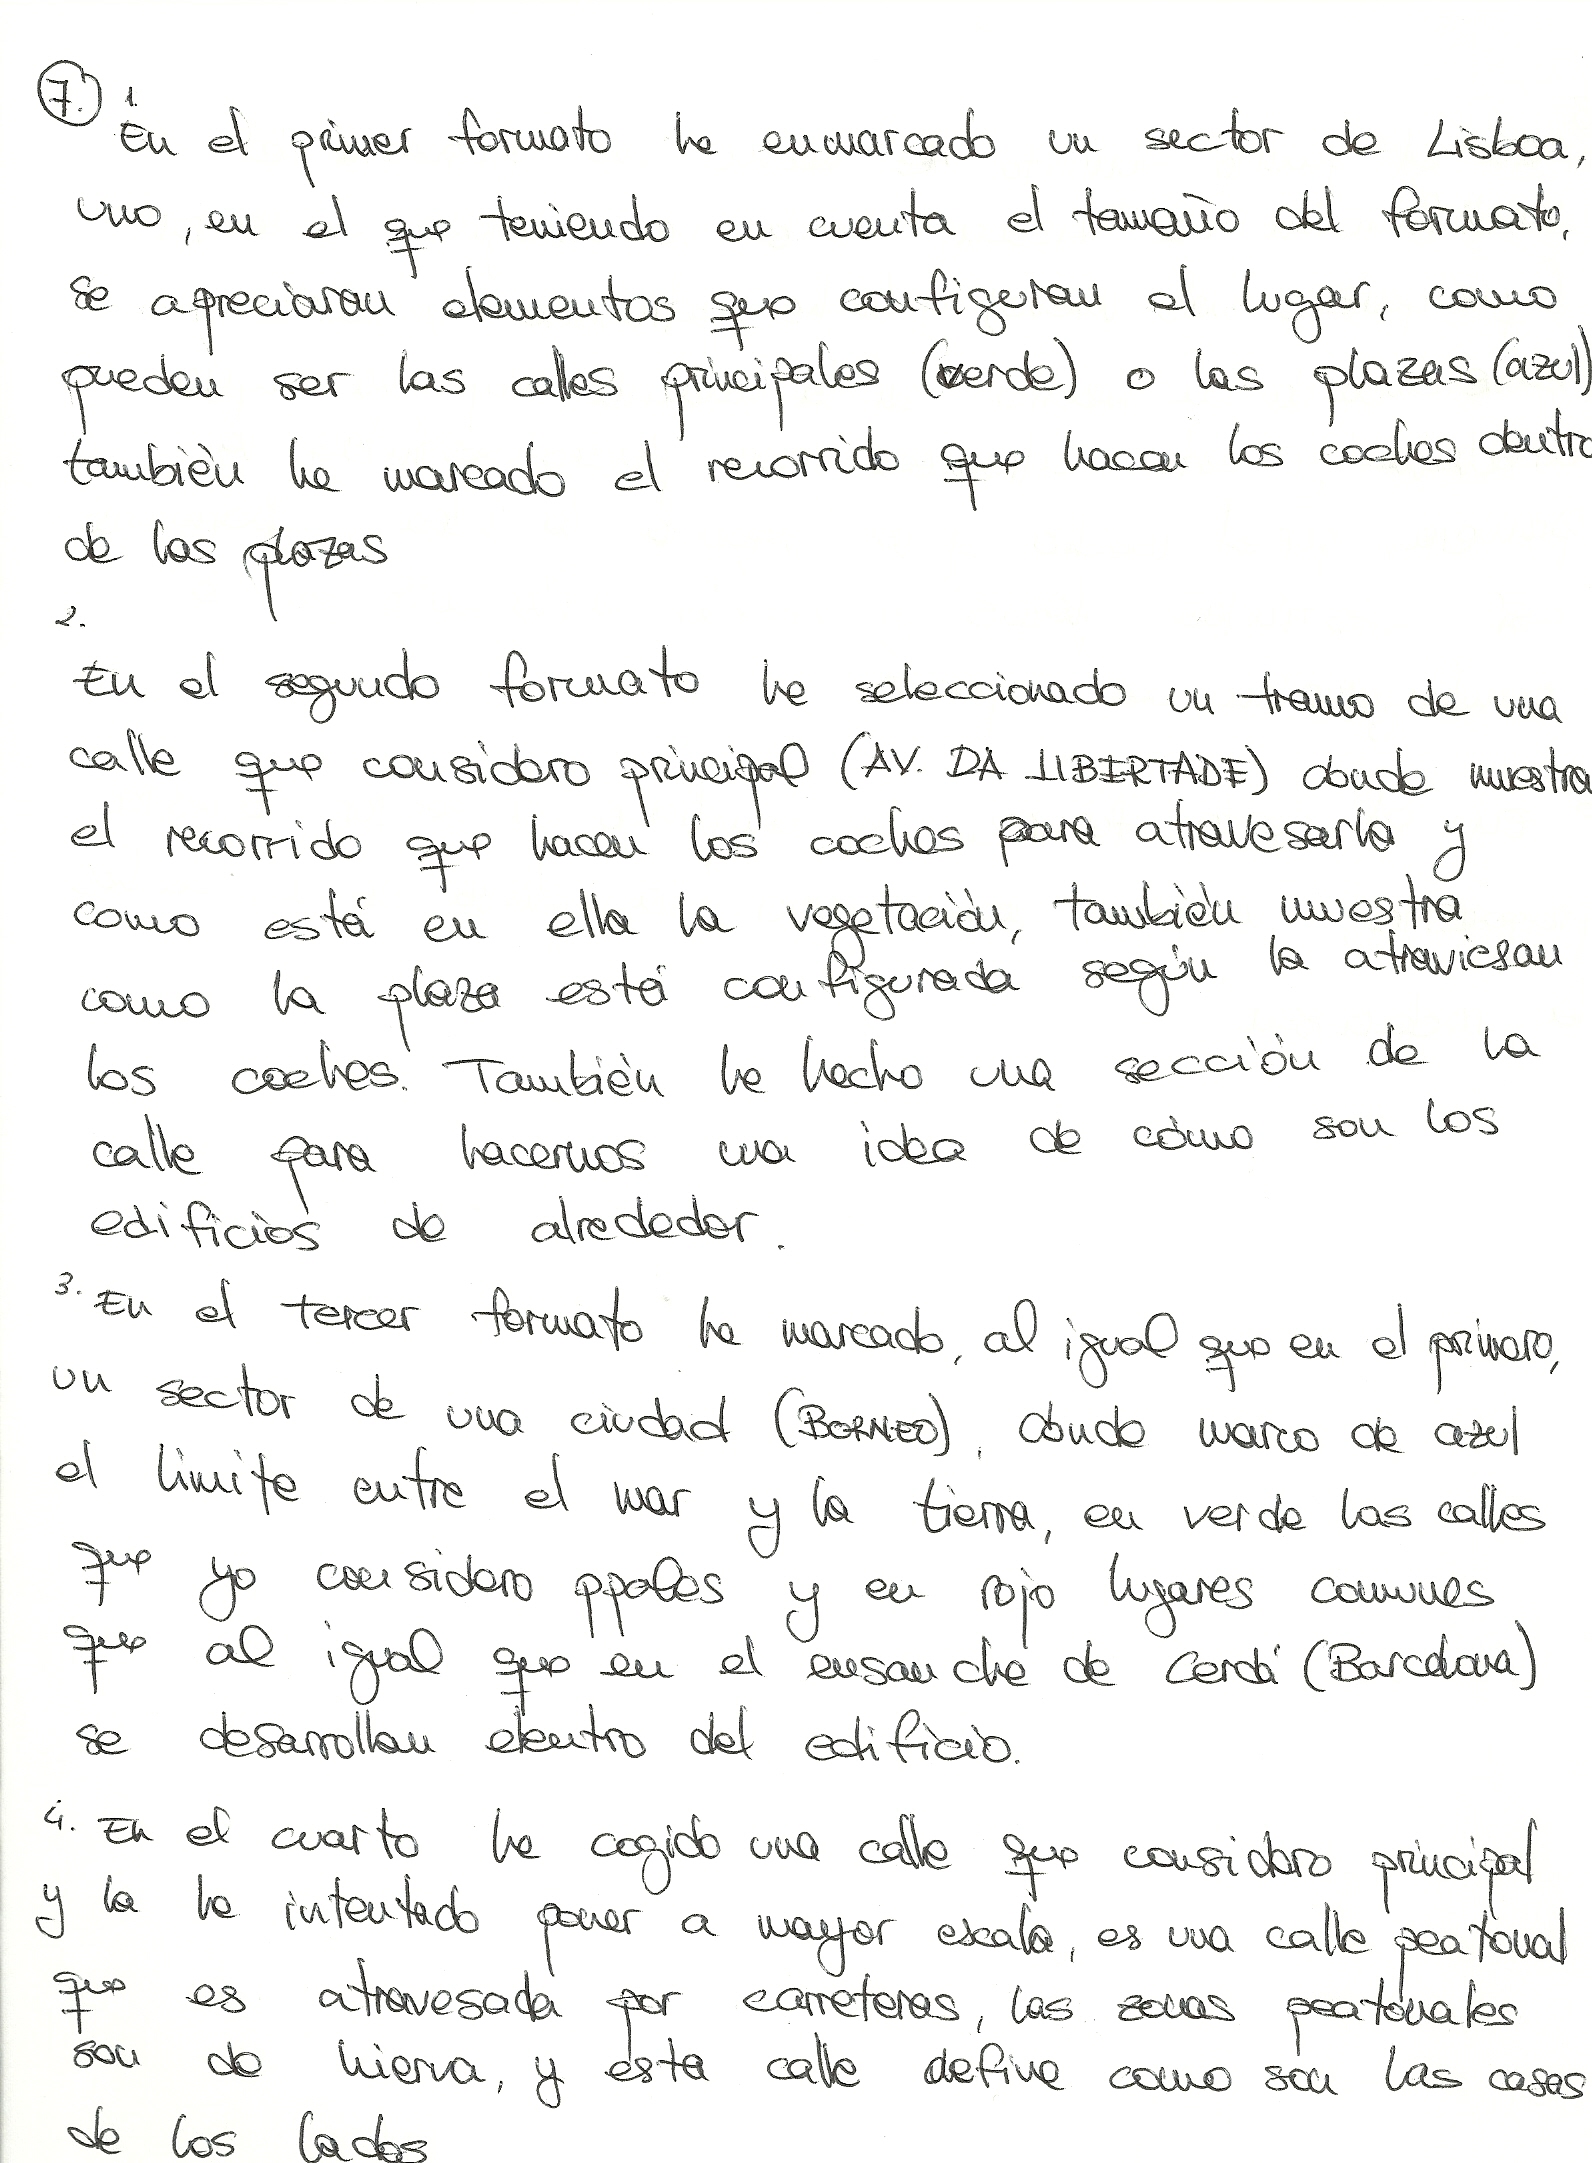 7. 1
En el primer formato he enmarcado un sector de Lisboa,
uno, en el que teniendo en cuenta el tamaño del formato,
se apreciaran elementos que configuran el lugar, como
pueden ser las calles principales (verde) o las plazas (azul)
también he marcado el recorrido que hacen los coches dentro
de las plazas
2.
En el segundo formato he seleccionado un tramo de una
calle que considero principal (AV. DA LIBERTADE) donde muestra
el recorrido que hacen los coches para atravesarla y
como está en ella la vegetación, también muestra
como la plaza está configurada según la atraviesan
los coches. También he hecho una sección de la
calle para hacernos una idea de cómo son los
edificios de alrededor.
3. En el tercer formato he marcado, al igual que en el primero,
un sector de una ciudad (BORNEO), donde marco de azul
el limite entre el mar y la tierra, en verde las calles
que yo considero ppales y en rojo lugares comunes
que al igual que en el ensanche de Cerdá (Barcelona)
se desarrollan dentro del edificio.
4. En el cuarto he cogido una calle que considero principal
y la he intentado poner a mayor escala, es una calle peatonal
que es atravesada por carreteras, las zonas peatonales
son de hierva, y esta calle define como son las casas
de los lados